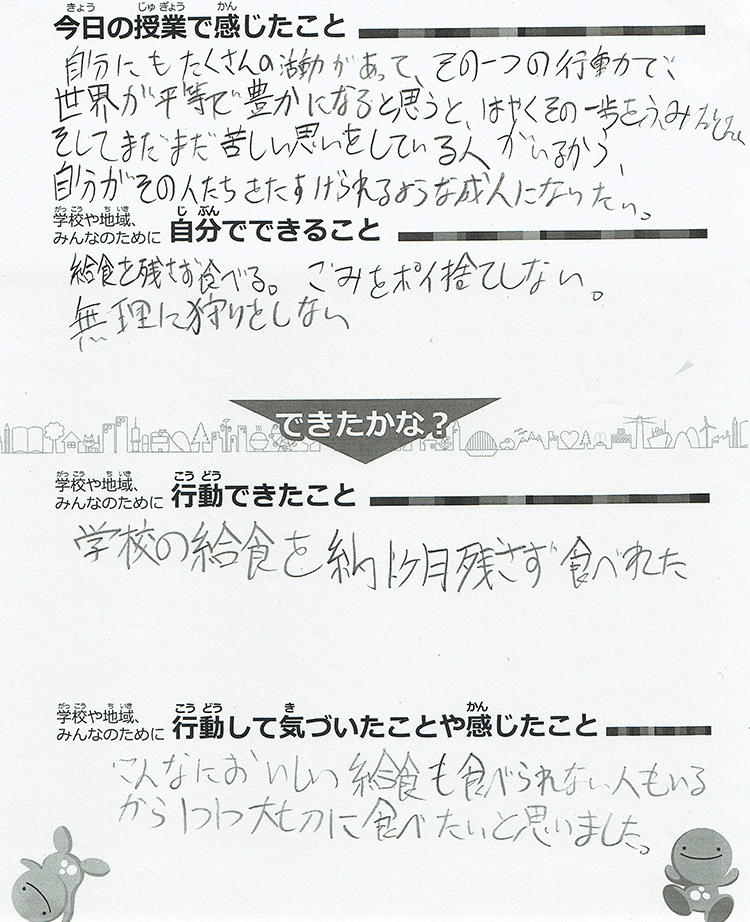 今日の授業で感じたこと
自分にもたくさんの活動があって、その一つの行動力で、
世界が平等で豊かになると思うと、はやくその一歩をふみたいし、
そしてまだまだ苦しい思いをしている人がいるから、
自分がその人たちをたすけられるような成人になりたい。
学校や地域、
みんなのために 自分でできること
給食を残さず食べる。ごみをポイ捨てしない。
無理に狩りをしない
できたかな？
学校や地域、
みんなのために 行動できたこと
学校の給食を約1ヶ月残さず食べれた
学校や地域、
みんなのために 行動して気づいたことや感じたこと
こんなにおいしい給食も食べられない人もいる
から1つ1つ大切に食べたいと思いました。